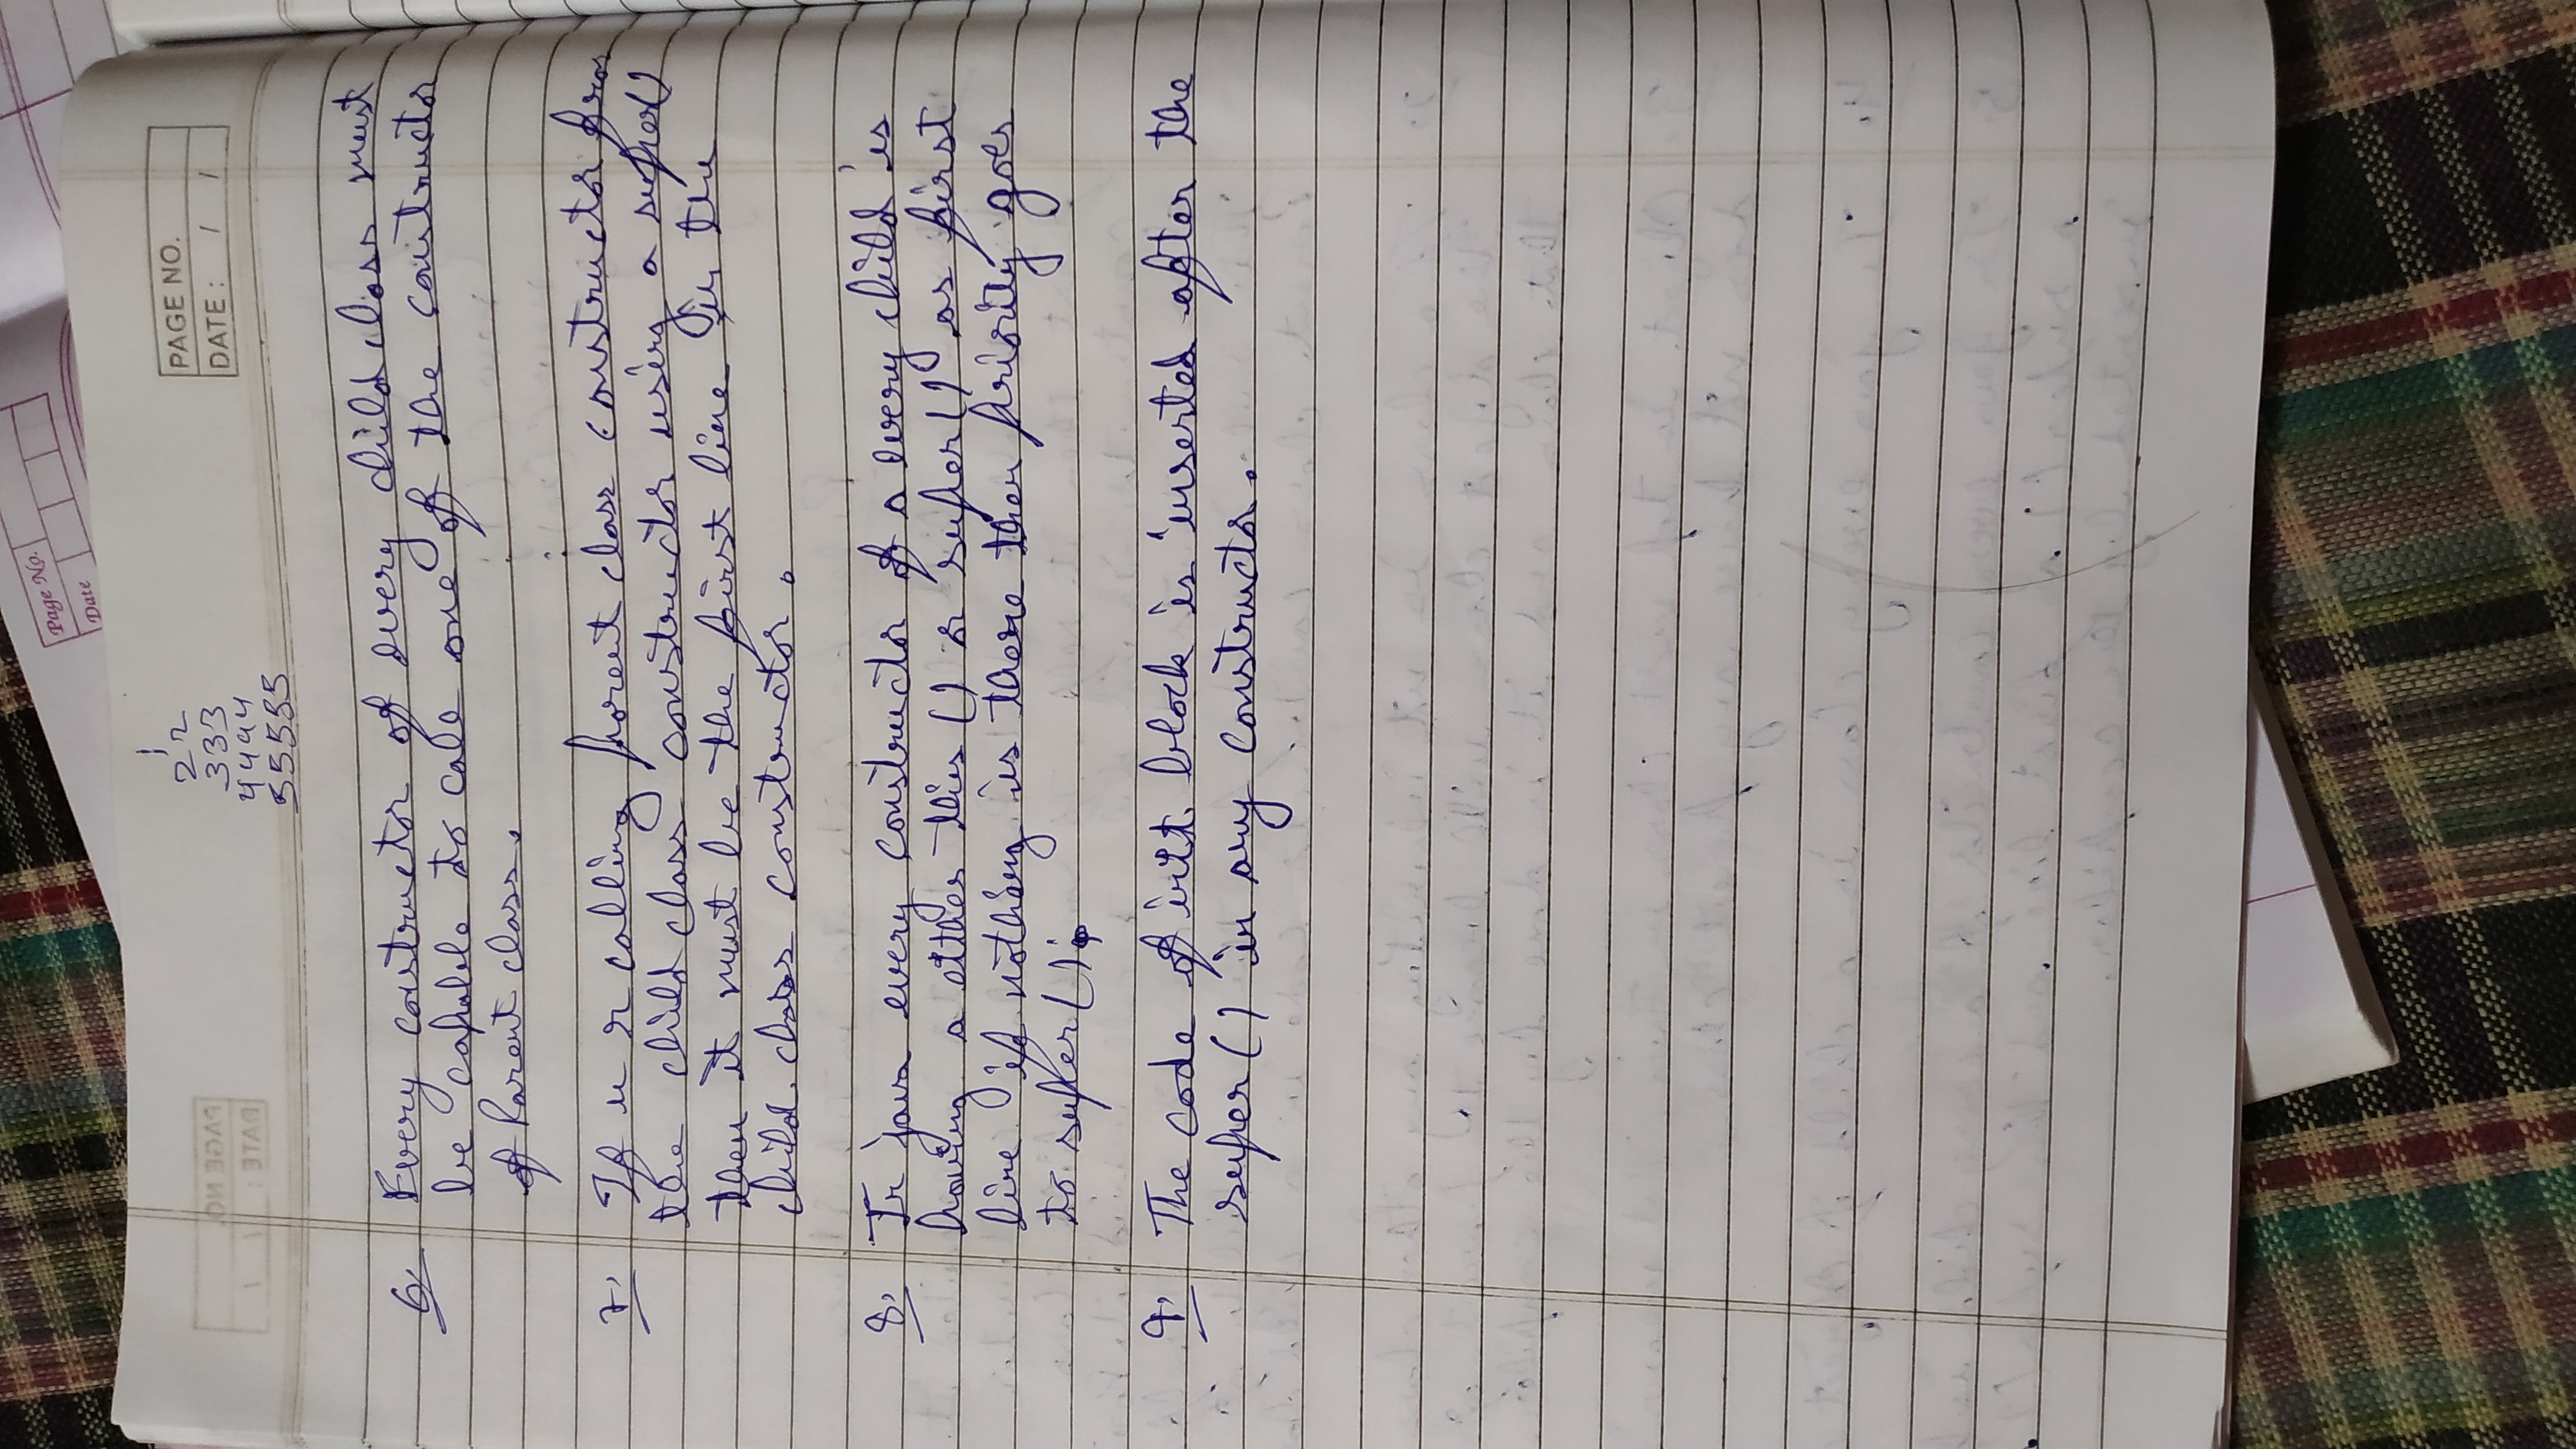 Page No.
Date
1
22
333
4444
55555
PAGE NO.
DATE : / /
6. Every constructor of every child class must
be capable to call one of the constructor
of Parent class.
7. If u r calling parent class constructor from
the child class constructor using a super()
then it must be the first line in the
child class constructor.
8. In java every constructor of a every child is
having a either this () or super() as first
line if nothing is there then priority goes
to super();
9. The code of init block is inserted after the
super () in any constructor.